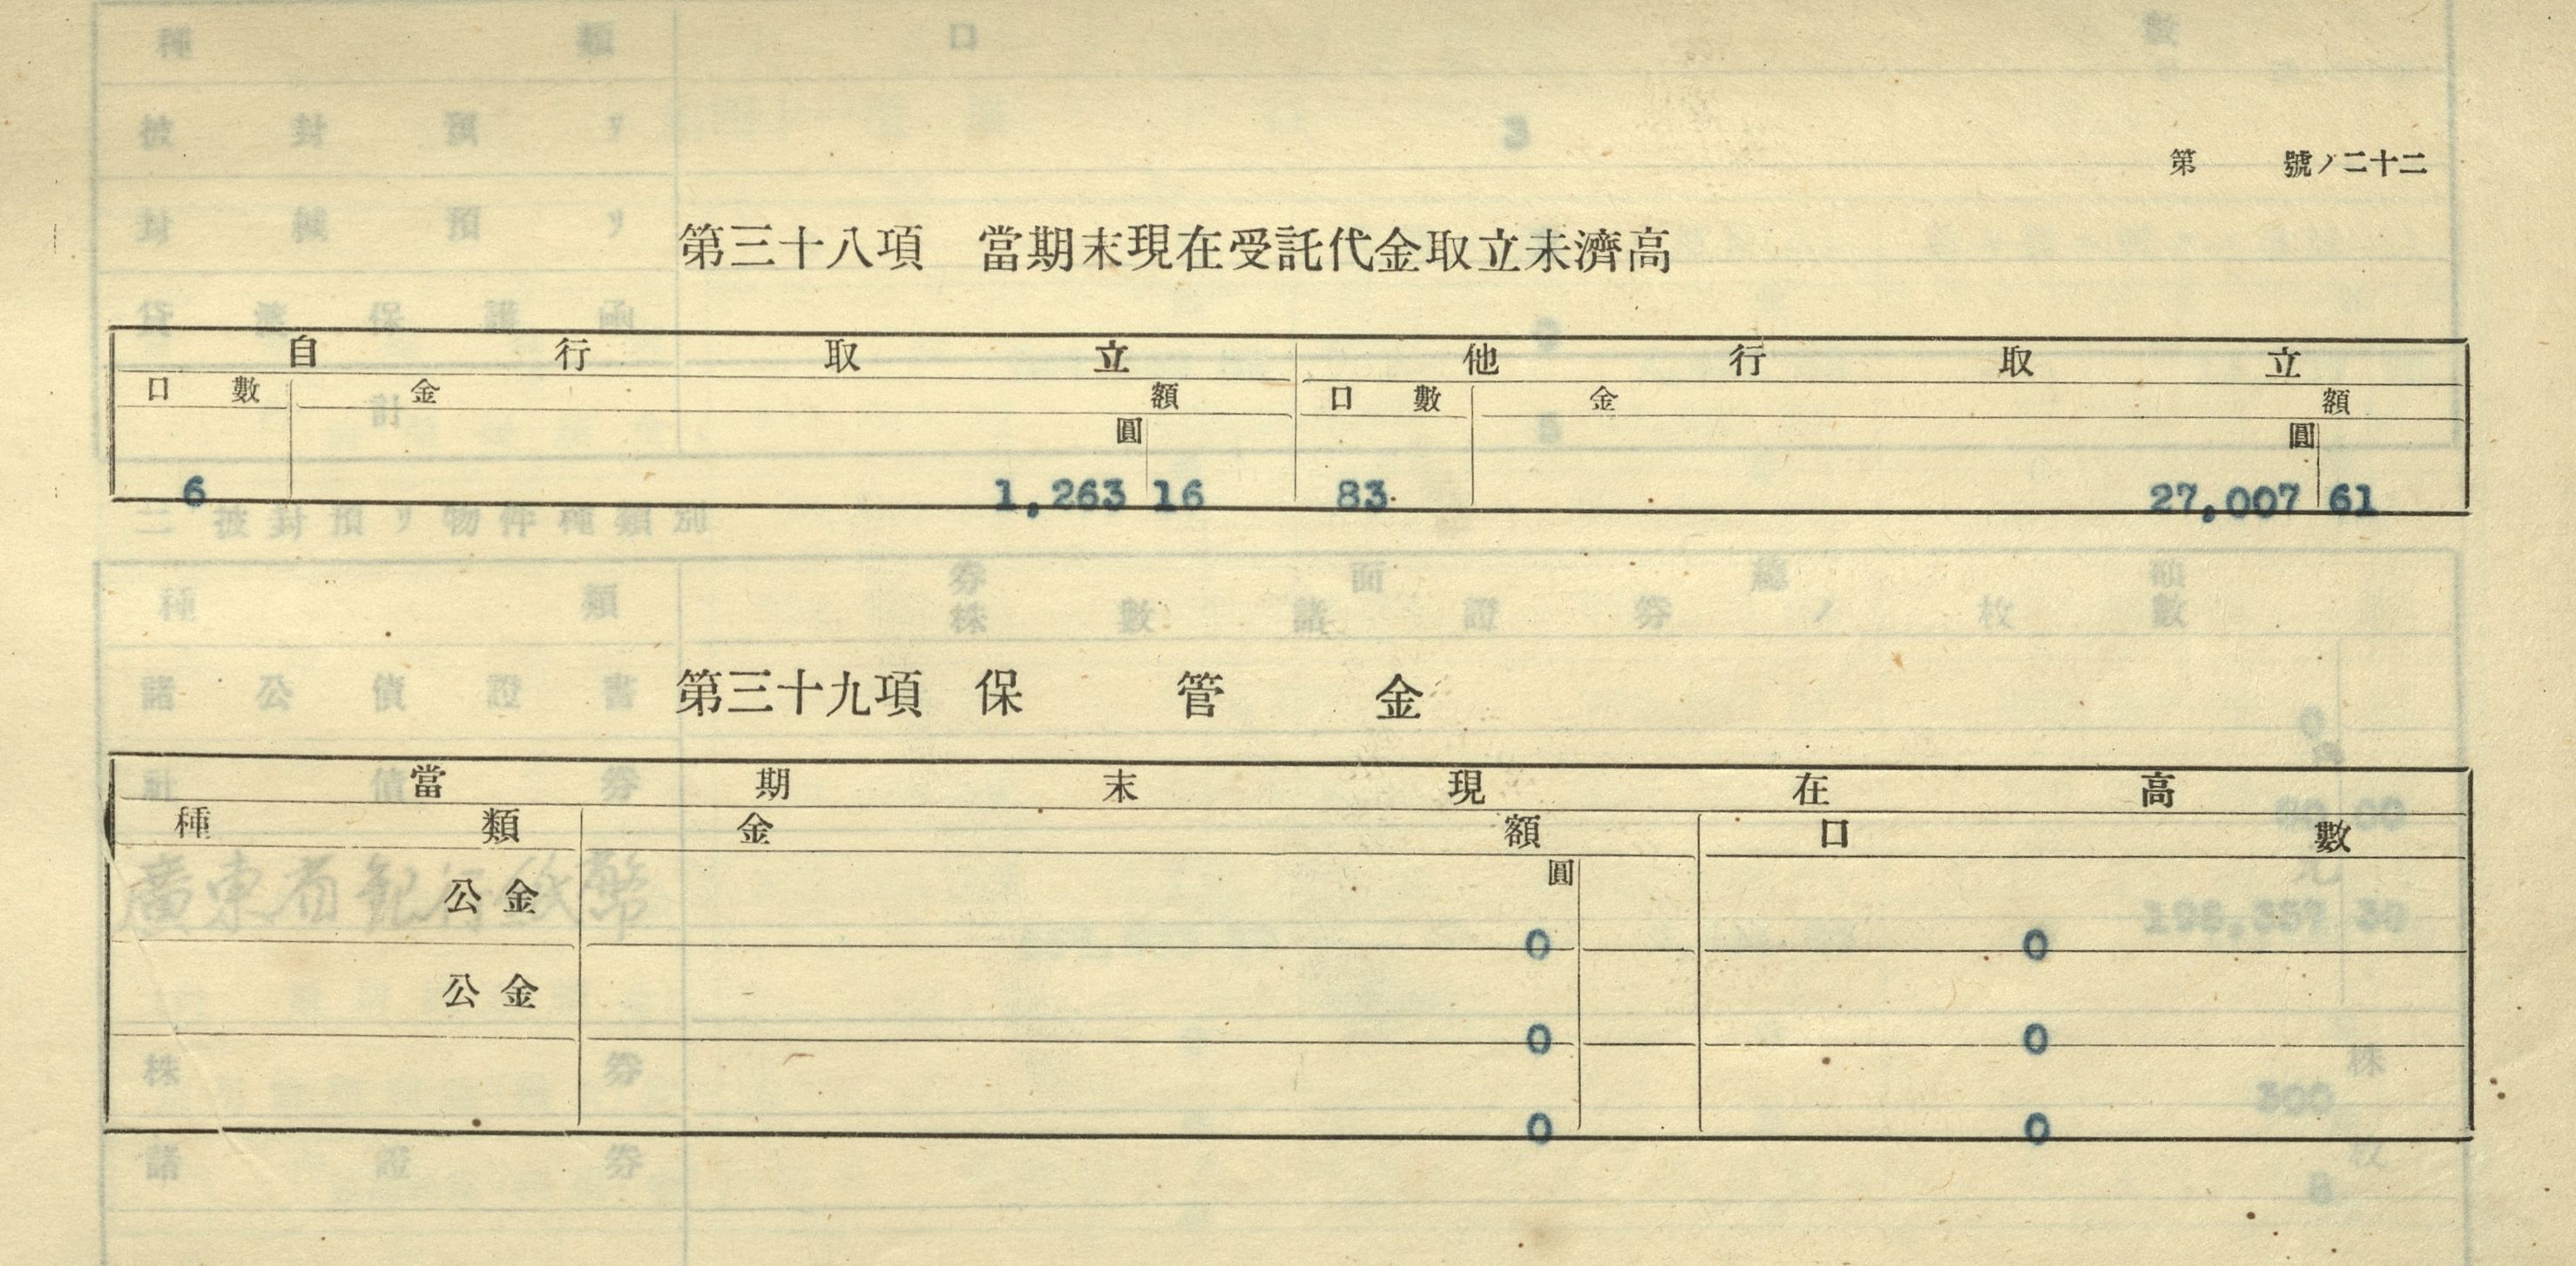 第 號ノ二十二
第三十八項 當期末現在受託代金取立未濟高
自行取立 他行取立
口數 金額 口數 金額
圓 圓
6 1,263 16 83 27,007 61
第三十九項 保管金
當期末現在高
種類 金額 口數
圓
公金 0 0
公金 0 0
0 0